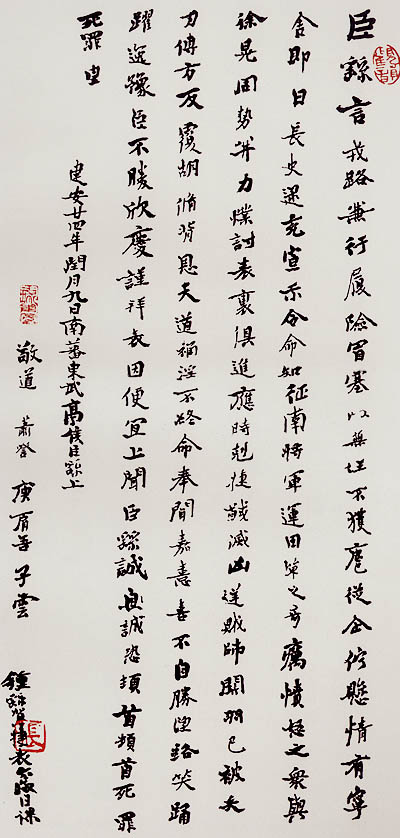 臣繇言戎路兼行履險冒寒以無任不獲扈從企佇懸情有寧
舍即日長史逯充宣示令命知征南將軍運田單之奇厲憤怒之衆與
徐晃同勢并力撲討表裏俱進應時剋捷馘滅凶逆賊帥關羽已被矢
刃傅方反覆胡脩背恩天道禍淫不終命奉聞嘉憙喜不自勝望路笑踊
躍逸豫臣不勝欣慶謹拜表因便宜上聞臣繇誠皇誠恐頓首頓首死罪
死罪
建安廿四年閏月九日南蕃東武亭侯臣繇上
敬道 子雲
鍾繇賀捷表 日课